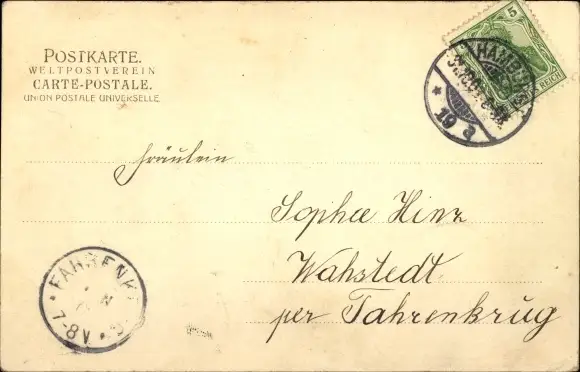 POSTKARTE.
WELTPOSTVEREIN
CARTE-POSTALE.
UNION POSTALE UNIVERSELLE
5
REICH
HAMBU
* 19 a
Fräulein
Sophie Hinz
Wahstedt
per Fahrenkrug
FAHRENK
7-8V